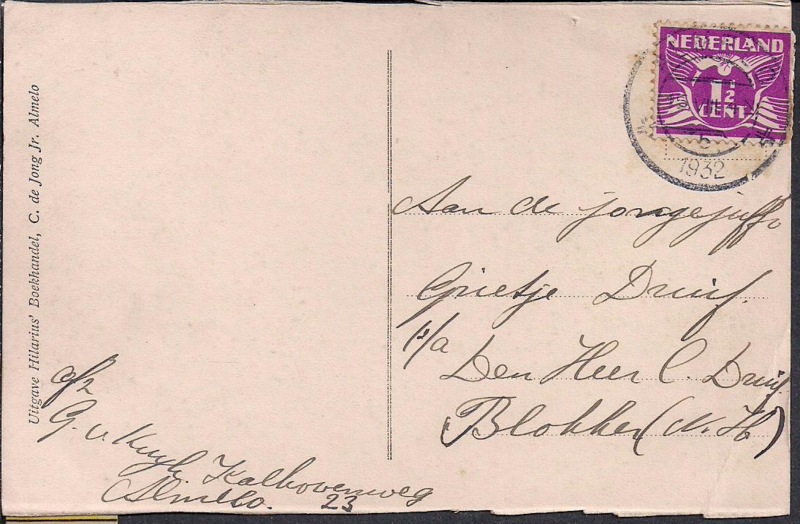 Uitgave Hilarius' Boekhandel, C. de Jong Jr. Almelo
NEDERLAND
1½
CENT
1932
Aan de jongejuffr
Grietje Druif.
p/a
Den Heer C. Druif
Blokker (N.H)
afz
G. v
Kalhovenweg
Almelo. 23